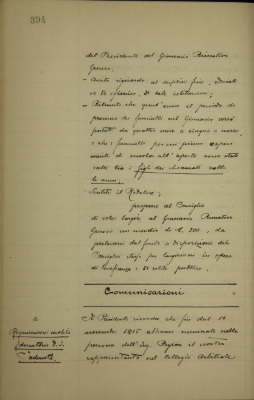 394
del Presidente del Ginnasio Ricreativo
Genovese;
- Avuto riguardo al duplice fine,
di istruire, di tale istituzione;
- Ritenuto che quest'anno il periodo di
presenza dei fanciulli nel Ginnasio verrà
portato da quattro mesi a cinque e mezzo
e che i fanciulli per un primo
di scuola all'aperto sono stati
scelti tra i figli dei richiamati sotto
le armi;
- Sentito il Relatore;
propone al Consiglio
di voler largire al Ginnasio Ricreativo
Genovese un sussidio di L. 200, da
prelevarsi dal fondo a disposizione del
Consiglio stesso per largizioni in opere
di beneficenza e di utilità pubblica.
Comunicazioni
a
Requisizione mobili
Il Presidente ricorda che fin dal 16
novembre 1915 abbiamo nominato nella
persona dell'Ing. il nostro
rappresentante nel Collegio Arbitrale